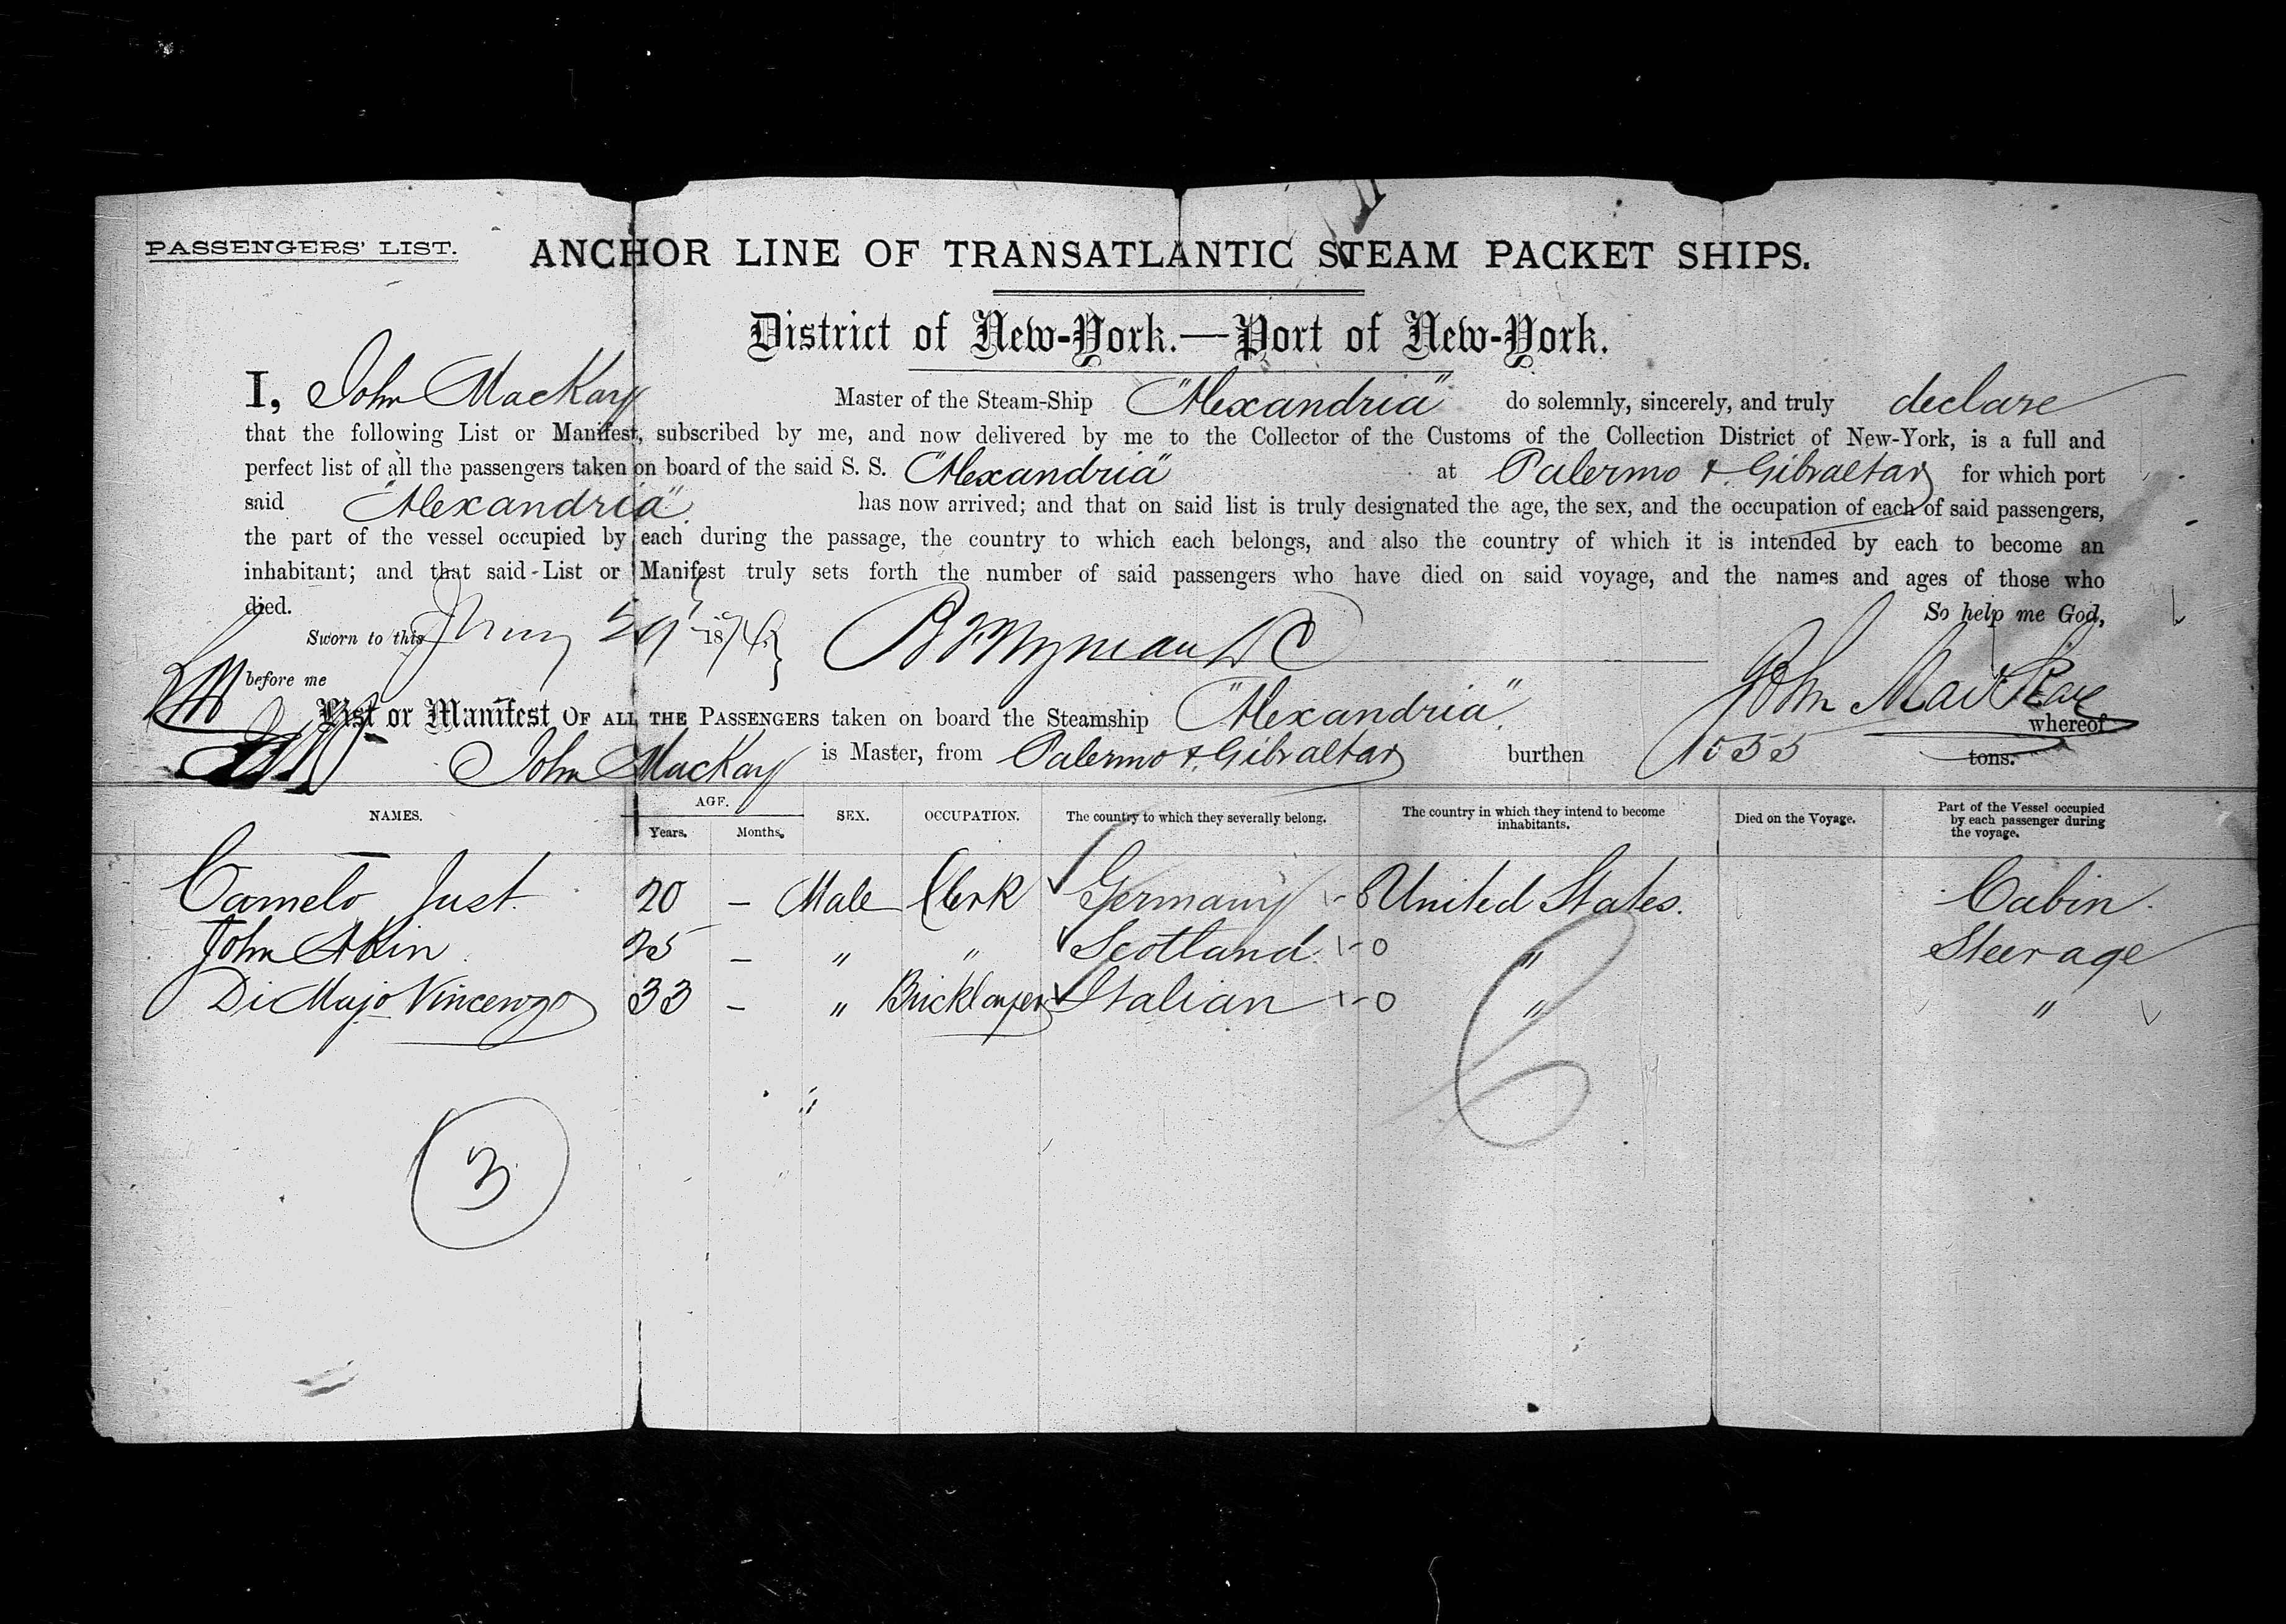 PASSENGERS' LIST. ANCHOR LINE OF TRANSATLANTIC STEAM PACKET SHIPS.
District of New-York.—Port of New-York.
I, John MacKay Master of the Steam-Ship "Alexandria" do solemnly, sincerely, and truly declare
that the following List or Manifest, subscribed by me, and now delivered by me to the Collector of the Customs of the Collection District of New-York, is a full and
perfect list of all the passengers taken on board of the said S. S. "Alexandria" at Palermo & Gibraltar for which port
said "Alexandria" has now arrived; and that on said list is truly designated the age, the sex, and the occupation of each of said passengers,
the part of the vessel occupied by each during the passage, the country to which each belongs, and also the country of which it is intended by each to become an
inhabitant; and that said List or Manifest truly sets forth the number of said passengers who have died on said voyage, and the names and ages of those who
died. So help me God,
Sworn to this 18
before me John MacKay
List or Manifest OF ALL THE PASSENGERS taken on board the Steamship "Alexandria" whereof
John MacKay is Master, from Palermo & Gibraltar burthen tons.
NAMES. AGE. Years. Months. SEX. OCCUPATION. The country to which they severally belong. The country in which they intend to become inhabitants. Died on the Voyage. Part of the Vessel occupied by each passenger during the voyage.
Camelo Just. 20 – Male Clerk Germany United States. Cabin.
John Akin. 25 – " " Scotland. " Steerage
Di Majo Vincenzo 33 – " Bricklayer Italian " "
3